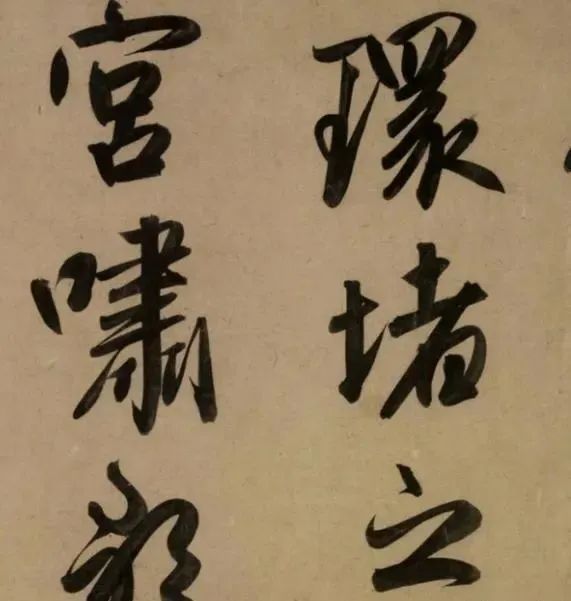 環堵之
宮嘯歌